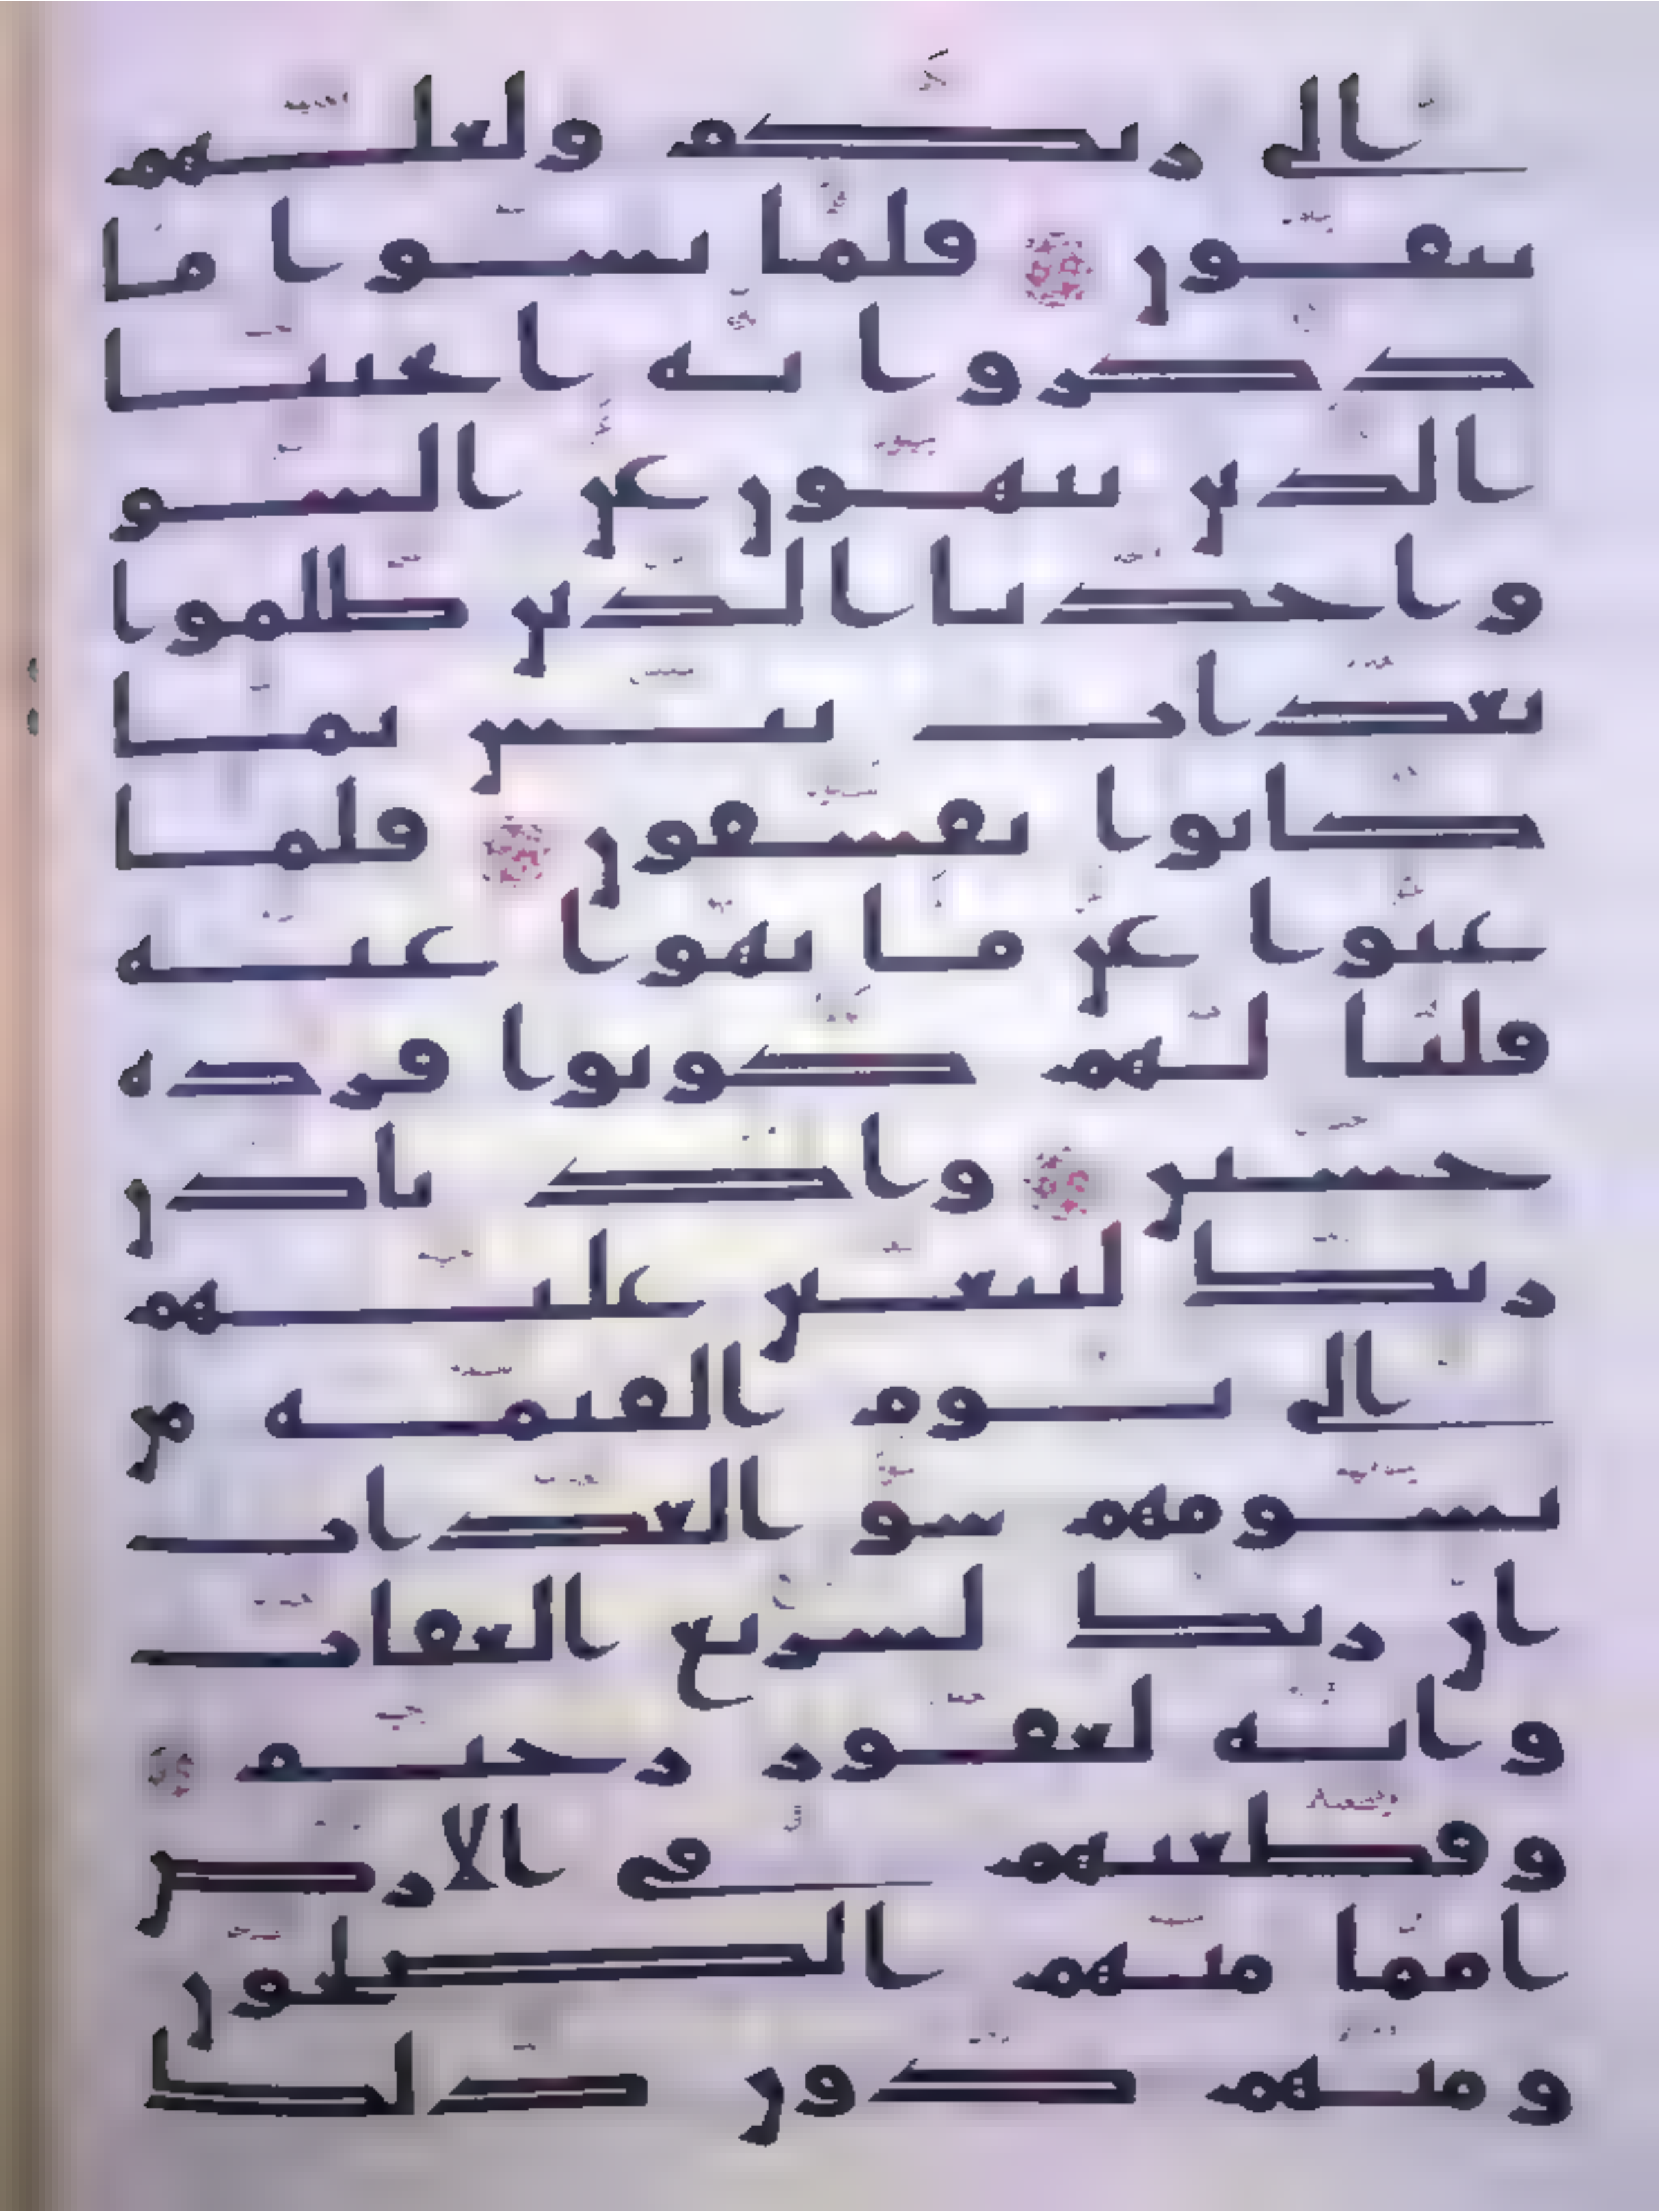 الى ربكم ولعلهم
يتقون فلما نسوا ما
ذكروا به انجينا
الذين ينهون عن السو
واخذنا الذين ظلموا
بعذاب بئيس بما
كانوا يفسقون فلما
عتوا عن ما نهوا عنه
قلنا لهم كونوا قرده
خسين واذ تاذن
ربك ليبعثن عليهم
الى يوم القيمه من
يسومهم سو العذاب
ان ربك لسريع العقاب
وانه لغفور رحيم
وقطعنهم في الارض
امما منهم الصلحون
ومنهم دون ذلك